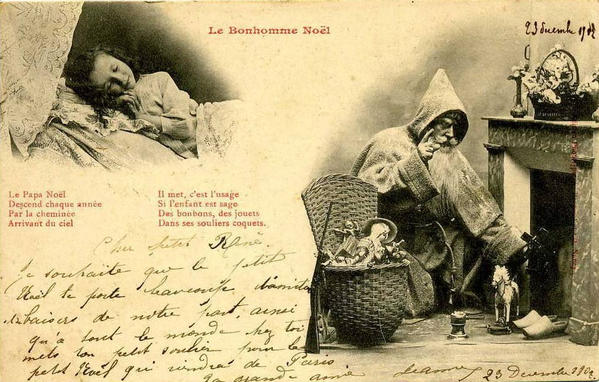 Le Bonhomme Noël
23 décembre 1902
Le Papa Noël
Descend chaque année
Par la cheminée
Arrivant du ciel
Il met, c'est l'usage
Si l'enfant est sage
Des bonbons, des jouets
Dans ses souliers coquets.
Cher petit René.
Je souhaite que le petit
Noël te porte beaucoup
baisers de notre part, ainsi
qu'a tout le monde toi
mets ton petit soulier pour le
petit Noël qui viendra de Paris
Ta grande amie Jeanne 23 Decembre 1902